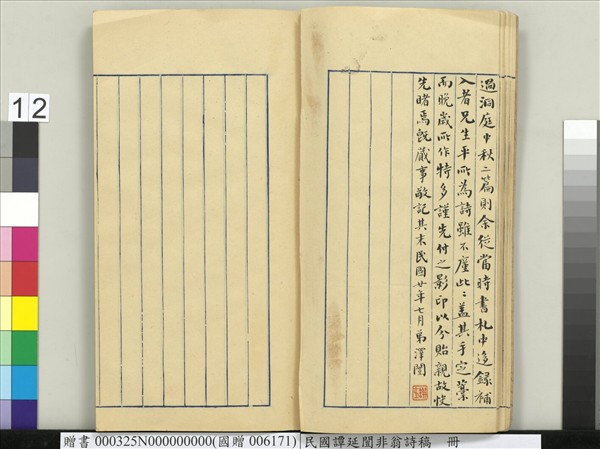 過洞庭中秋二篇則余從當時書札中追錄補
入者兄生平所為詩雖不廑此〻蓋其手定藁
而晚歲所作特多謹先付之影印以分貽親故快
先睹焉既蕆事敬記其末民國廿年七月弟澤闓
12
贈書 000325N000000000(國贈 006171) 民國譚延闓非翁詩稿 冊